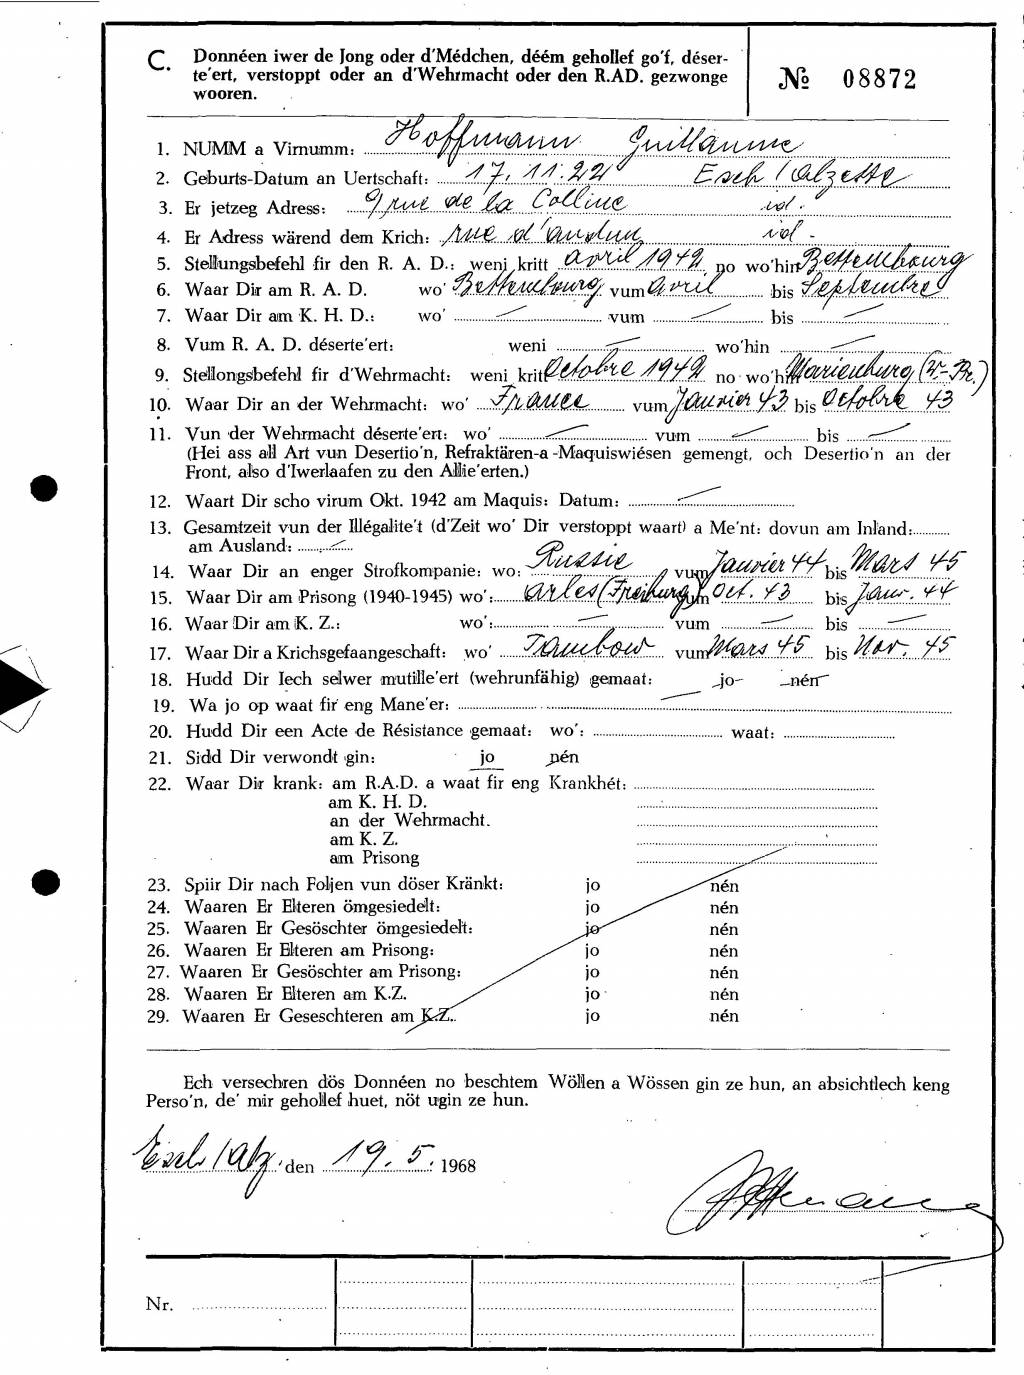 C. Donnéen iwer de Jong oder d'Médchen, déém gehollef go'f, déser-
te'ert, verstoppt oder an d'Wehrmacht oder den R.AD. gezwonge
wooren.
№ 08872
1. NUMM a Virnumm: Hoffmann Guillaume
2. Geburts-Datum an Uertschaft: 17.11.22 Esch/Alzette
3. Er jetzeg Adress: 9 rue de la Colline id.
4. Er Adress wärend dem Krich: rue d'audun id-
5. Stellungsbefehl fir den R. A. D.: weni kritt avril 1942 no wo'hin Bettembourg
6. Waar Dir am R. A. D. wo' Bettembourg vum avril bis Septembre
7. Waar Dir am K. H. D.: wo' — vum — bis —
8. Vum R. A. D. déserte'ert: weni — wo'hin —
9. Stellongsbefehl fir d'Wehrmacht: weni kritt Octobre 1942 no wo'hin Marienburg (W.-Pr.)
10. Waar Dir an der Wehrmacht: wo' France vum Janvier 43 bis Octobre 43
11. Vun der Wehrmacht déserte'ert: wo' — vum — bis —
(Hei ass all Art vun Desertio'n, Refraktären-a-Maquiswiésen gemengt, och Desertio'n an der
Front, also d'Iwerlaafen zu den Allie'erten.)
12. Waart Dir scho virum Okt. 1942 am Maquis: Datum: —
13. Gesamtzeit vun der Illégalite't (d'Zeit wo' Dir verstoppt waart) a Me'nt: dovun am Inland:
am Ausland: —
14. Waar Dir an enger Strofkompanie: wo: Russie vum Janvier 44 bis Mars 45
15. Waar Dir am Prisong (1940-1945) wo': Arles (Freiburg) vum Oct. 43 bis Janv. 44
16. Waar Dir am K. Z.: wo': — vum — bis —
17. Waar Dir a Krichsgefaangeschaft: wo' Tambow vum Mars 45 bis Nov. 45
18. Hudd Dir Iech selwer mutille'ert (wehrunfähig) gemaat: jo nén
19. Wa jo op waat fir eng Mane'er: —
20. Hudd Dir een Acte de Résistance gemaat: wo': waat:
21. Sidd Dir verwondt gin: jo nén
22. Waar Dir krank: am R.A.D. a waat fir eng Krankhét:
am K. H. D.
an der Wehrmacht.
am K. Z.
am Prisong
23. Spiir Dir nach Foljen vun döser Kränkt: jo nén
24. Waaren Er Elteren ömgesiedelt: jo nén
25. Waaren Er Gesöschter ömgesiedelt: jo nén
26. Waaren Er Elteren am Prisong: jo nén
27. Waaren Er Gesöschter am Prisong: jo nén
28. Waaren Er Elteren am K.Z. jo nén
29. Waaren Er Geseschteren am K.Z. jo nén
Ech versechren dös Donnéen no beschtem Wöllen a Wössen gin ze hun, an absichtlech keng
Perso'n, de' mir gehollef huet, nöt ugin ze hun.
Esch/Alz. den 19.5. 1968
Hoffmann
Nr.